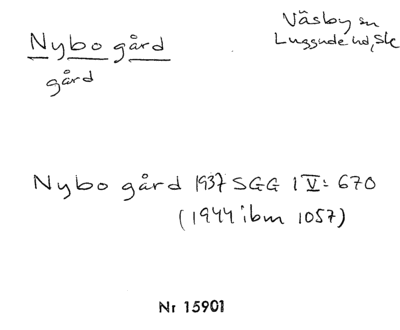 Nybo gård
gård
Väsby sn
Luggude hd, Sk
Nybo gård 1937 SGG 1 V: 670
(1944 ibm 1057)
Nr 15901